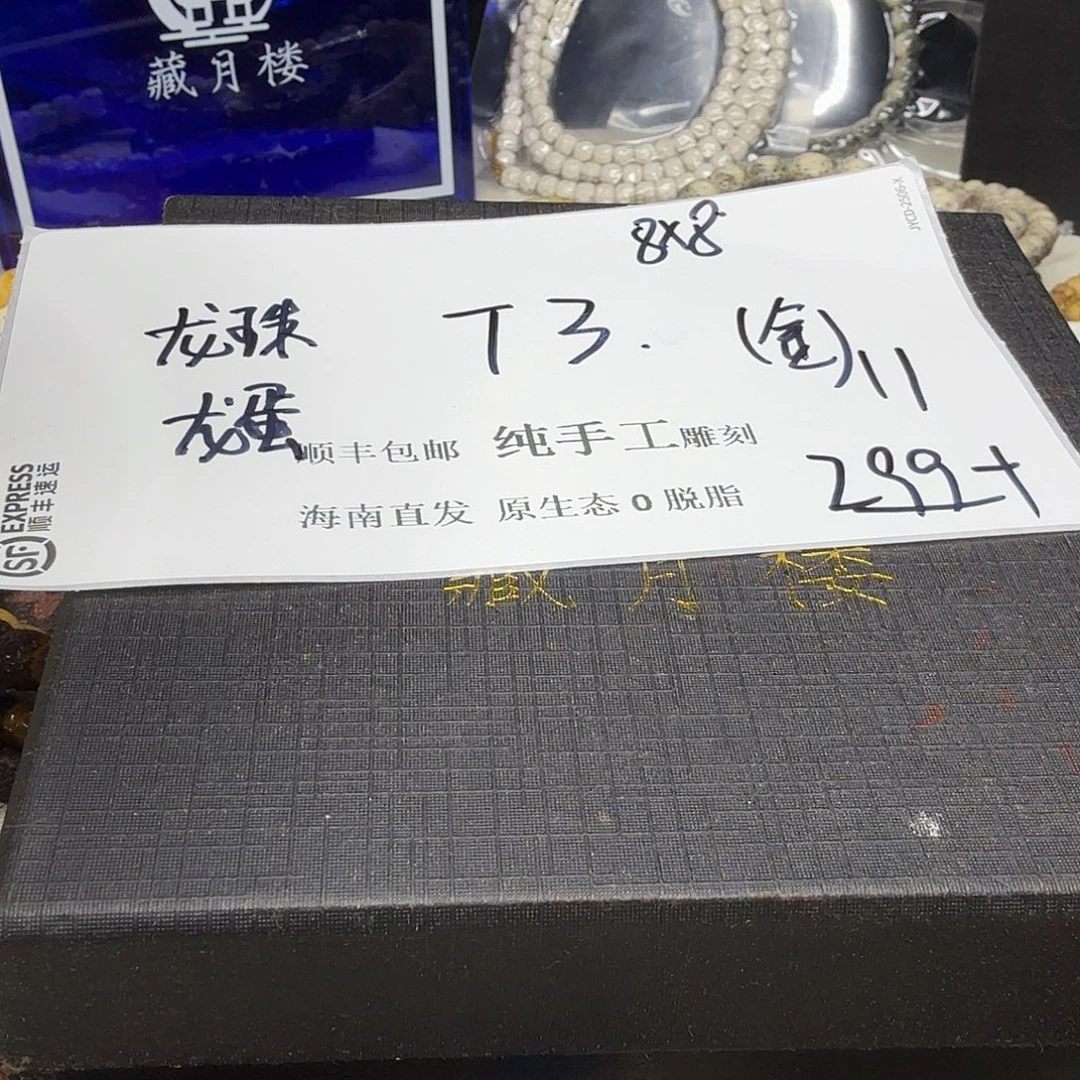 藏月楼
JYCD-2506-X
8x8
龙珠 T3. (金)11
龙蛋
顺丰包邮 纯手工雕刻
299+
海南直发 原生态0脱脂
SF EXPRESS
顺丰速运
藏月楼